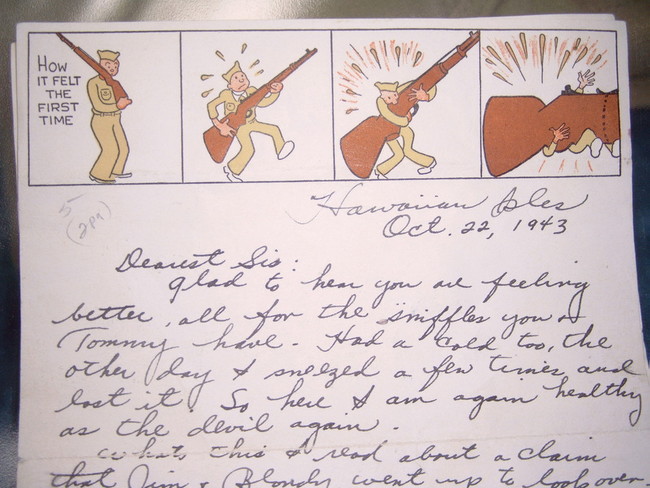 HOW
IT FELT
THE
FIRST
TIME
5
(2pg)
Hawaiian Isles
Oct. 22, 1943
Dearest Sis:
Glad to hear you are feeling
better, all for the sniffles you &
Tommy have. Had a cold too, the
other day & sneezed a few times and
lost it. So here I am again healthy
as the devil again.
What's this I read about a claim
that Jim & Blondy went up to look over